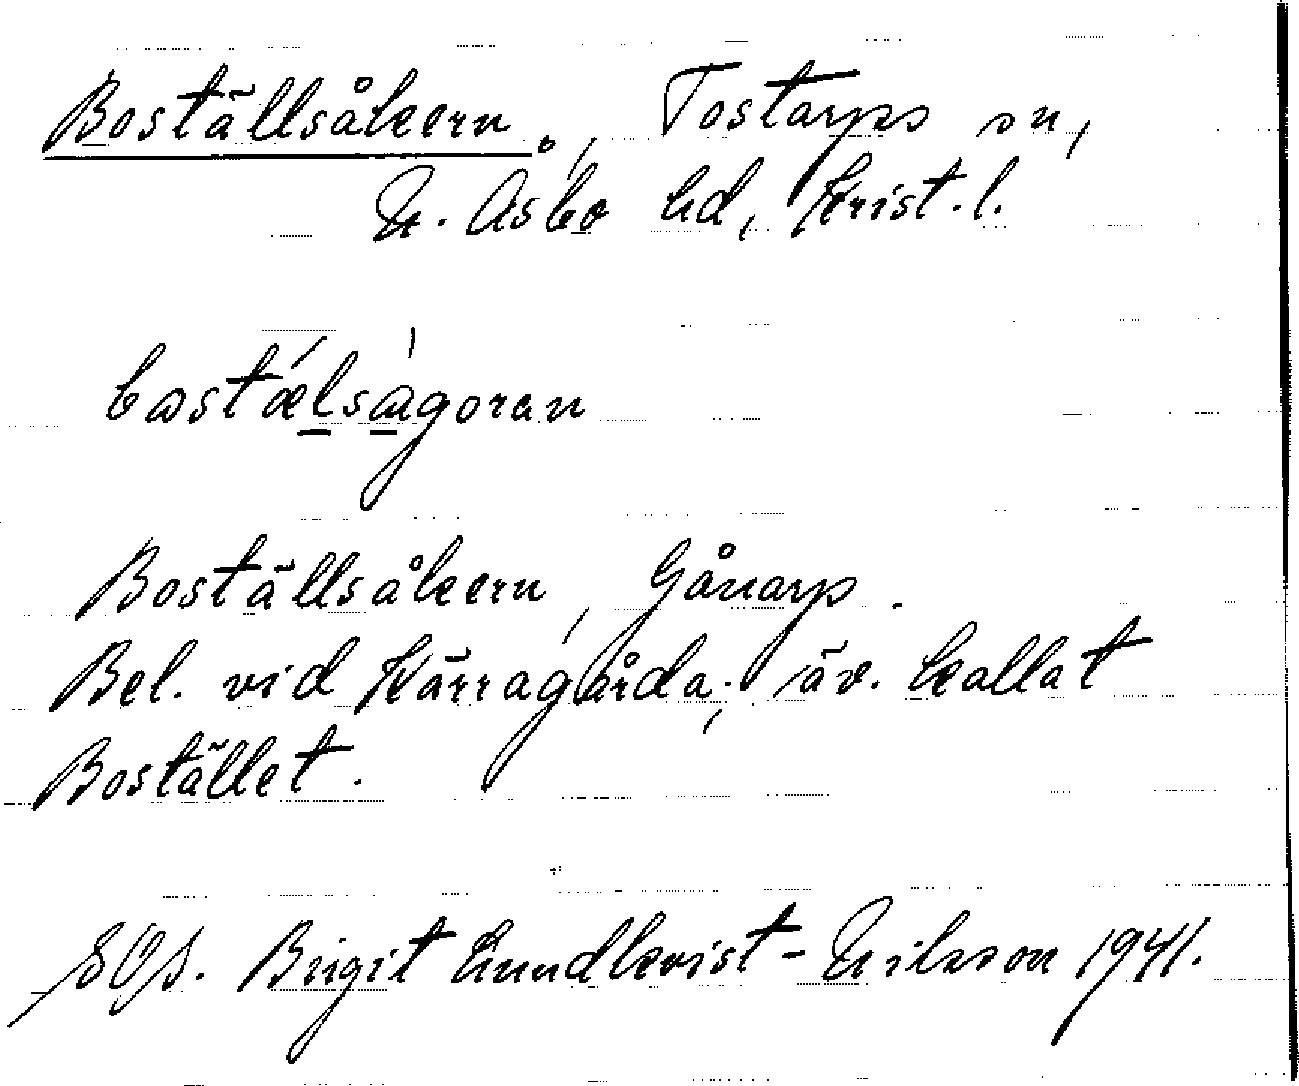 Boställsåkern, Tostarps sn,
N. Åsbo hd, Krist. l.
bostǽlsàgoran
Boställsåkern, Gånarp.
Bel. vid Kärragårda; äv. kallat
Bostället.
SOS. Birgit Lundkvist-Nilsson 1941.